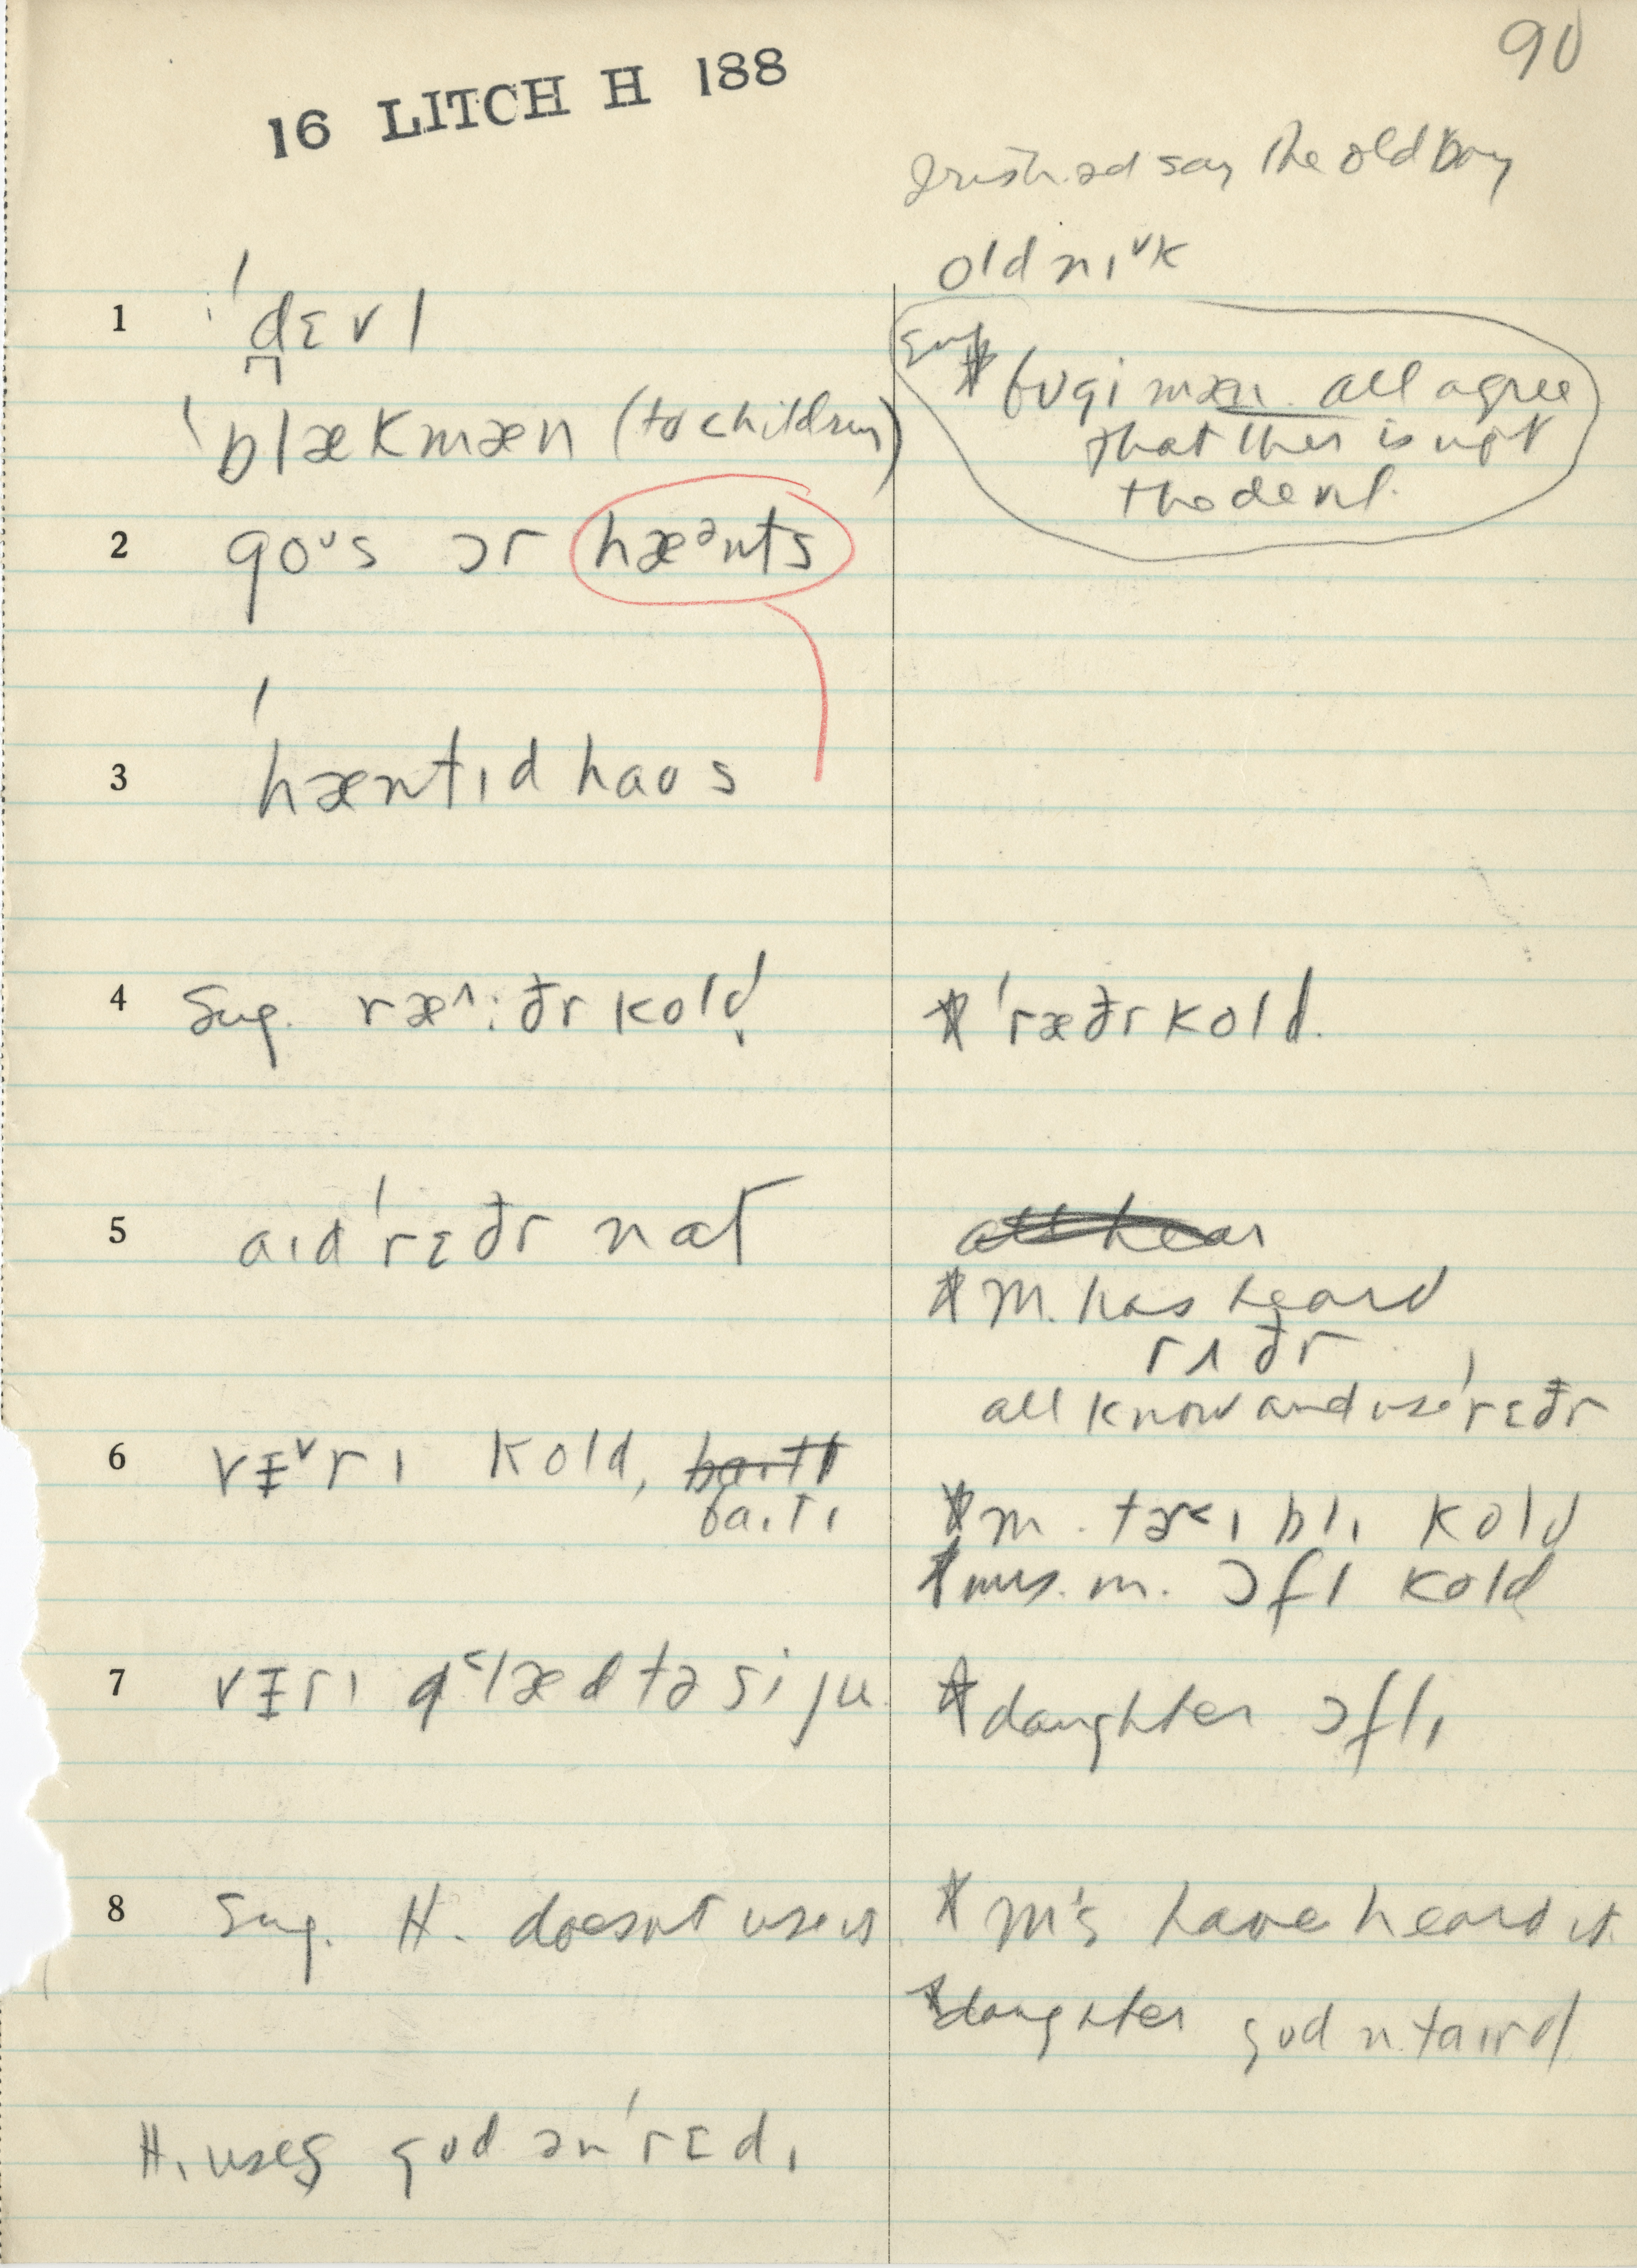 90
16 LITCH H 188
Irish. ad say the old boy
old nɪᵛk
1 ˈdɛvl
Sug. * bʊgi mæn. all agree
that this is not
the devil.
ˈblækmæn (to children)
2 goᵘs ɔr hæᵊnts
3 ˈhæntɪd haʊs
4 Sug. ræ^:ðr kold
* ˈræðr kold.
5 aɪd ˈrɛðr nat
* M. has heard
rʌðr
all know and use ˈrɛðr
6 vɛᵛrɪ kold, baɪtɪ
* m. tɚ˂ɪblɪ kold
* mrs. m. ɔfl kold
7 vɛrɪ g˂læd tə si ju
* daughter ɔflɪ
8 Sug. H. doesnt use it
* M's have heard it.
* daughter gʊd n. taɪrd
H. uses gʊd ən ˈrɛdɪ